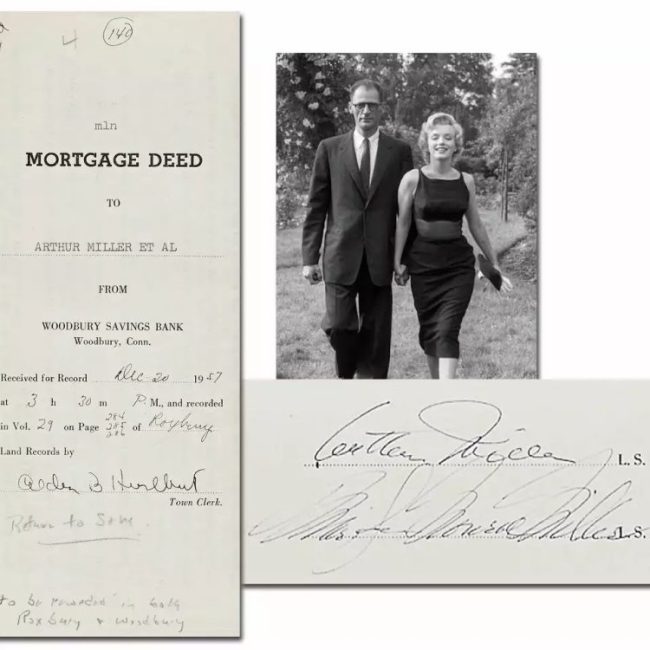 4 140
mln
MORTGAGE DEED
TO
ARTHUR MILLER ET AL
FROM
WOODBURY SAVINGS BANK
Woodbury, Conn.
Received for Record Dec 20 1957
at 3 h 30 m P.M., and recorded
284
in Vol. 29 on Page 285 of Roxbury
286
Land Records by
Alden B Hurlbut
Town Clerk.
Return to Same
to be recorded in both
Roxbury & Woodbury
Arthur Miller L.S.
Marilyn Monroe Miller L.S.